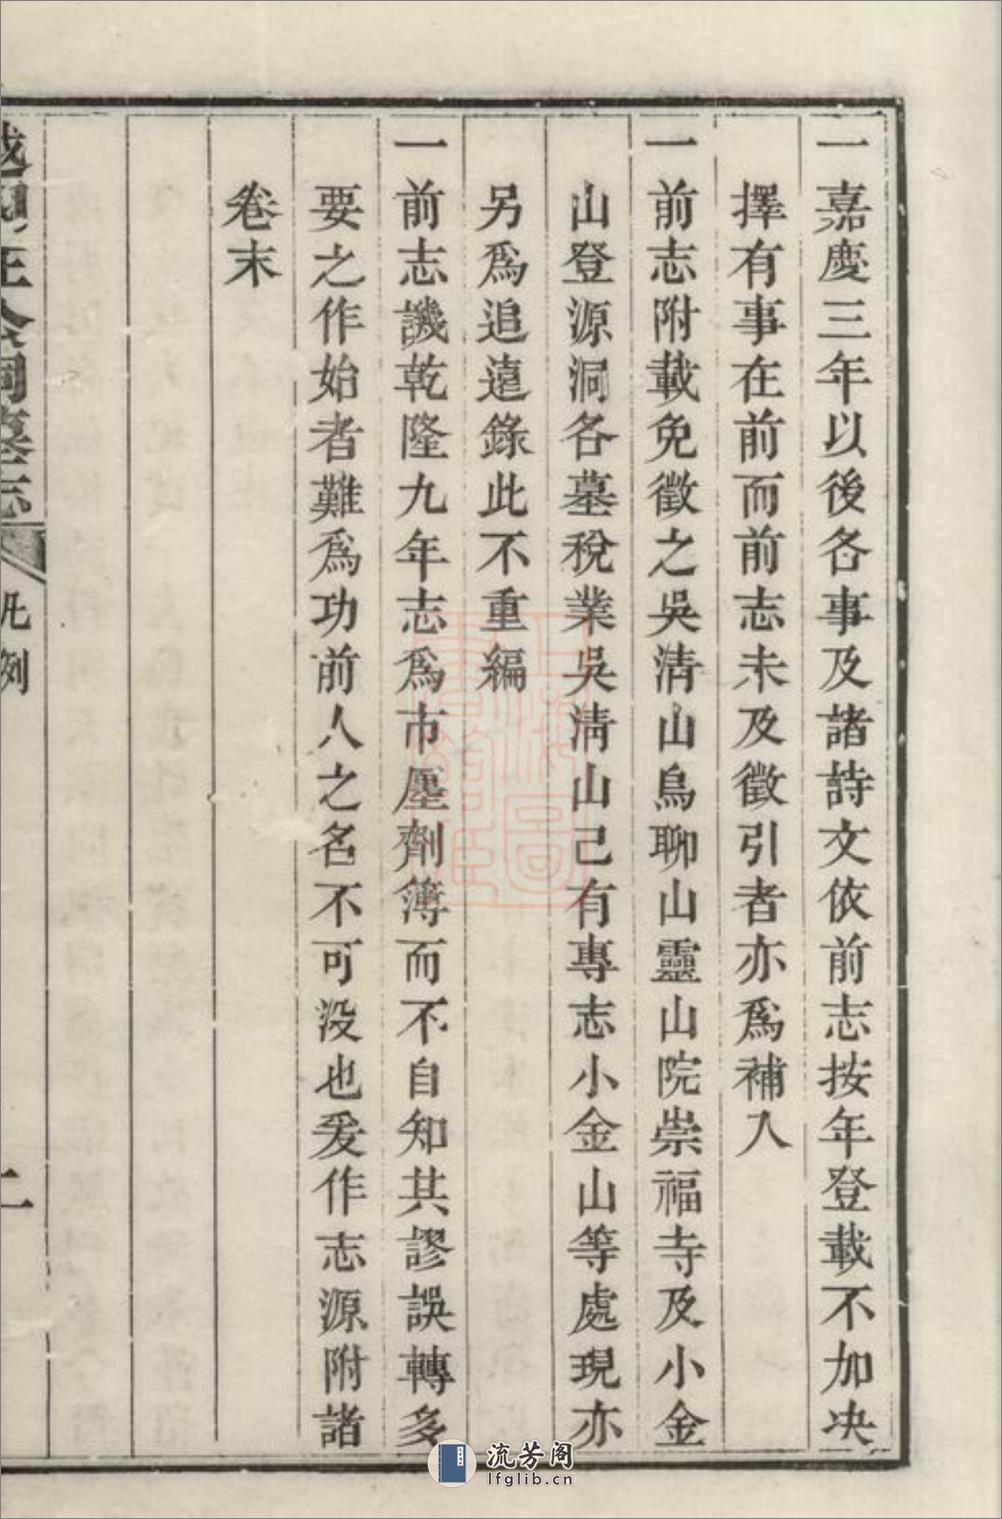 一嘉慶三年以後各事及諸詩文依前志按年登載不加决
擇有事在前而前志未及徵引者亦為補入
一前志附載免徵之吳清山鳥聊山靈山院崇福寺及小金
山登源洞各墓稅業吳清山己有專志小金山等處現亦
另為追遠錄此不重編
一前志譏乾隆九年志為市廛劑簿而不自知其謬誤轉多
要之作始者難為功前人之名不可没也爰作志源附諸
卷末
越國汪公祠墓志
凡例
二
流芳阁
lfglib.cn